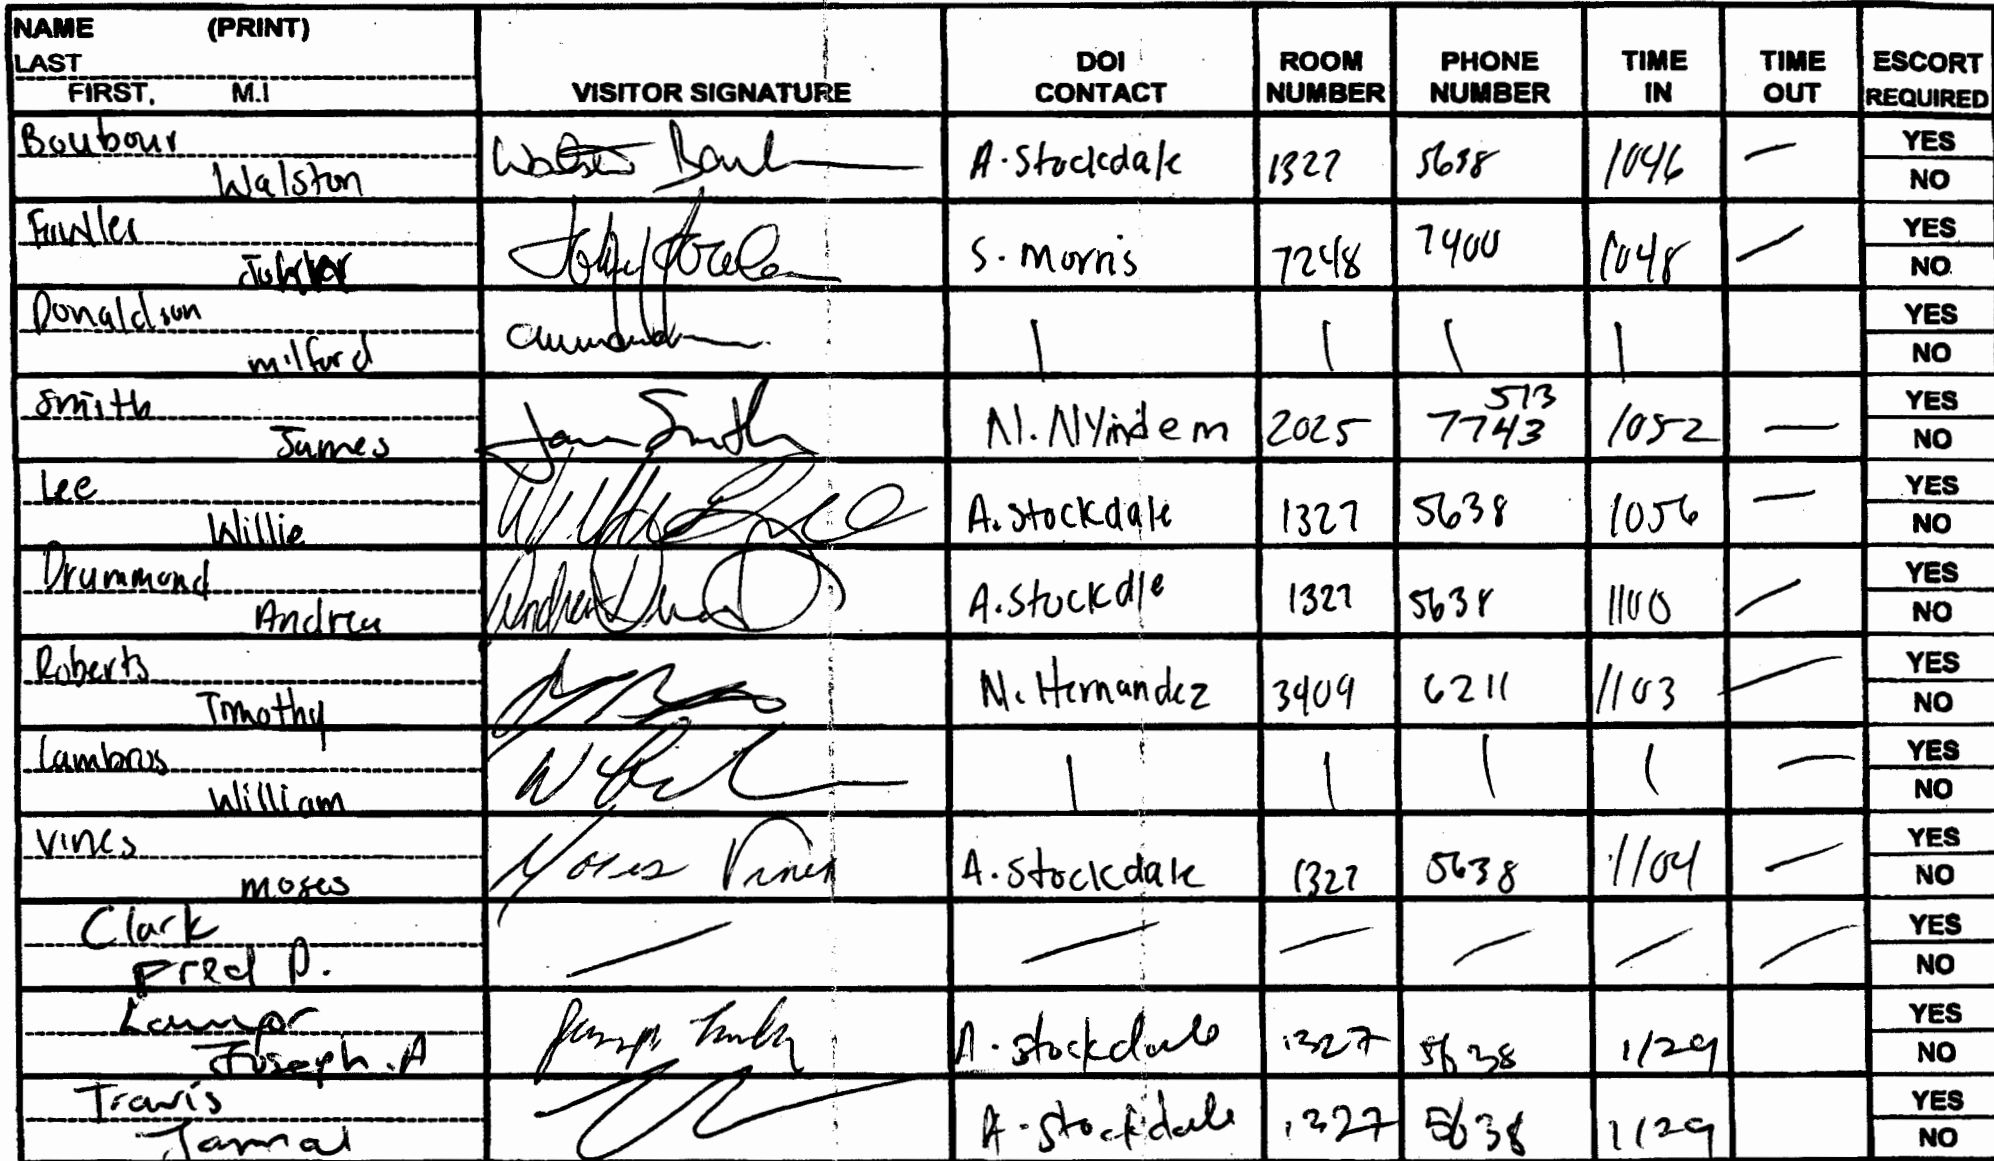 NAME (PRINT)
LAST
FIRST, M.I
VISITOR SIGNATURE
DOI CONTACT
ROOM NUMBER
PHONE NUMBER
TIME IN
TIME OUT
ESCORT REQUIRED
Boubour
Walston
A. Stockdale 1327 5638 1046 — YES
NO
Fowler
S. Morris 7248 7400 1048 — YES
NO
Donaldson
Milford
| | | | YES
NO
Smith
James
James Smith
N. Nyindem 2025 573 7743 1052 — YES
NO
Lee
Willie
A. Stockdale 1327 5638 1056 — YES
NO
Drummond
Andrew
A. Stockdle 1327 5638 1100 — YES
NO
Roberts
Timothy
N. Hernandez 3409 6211 1103 — YES
NO
Lambros
William
| | | | — YES
NO
Vines
Moses
Moses Vines
A. Stockdale 1327 5638 1104 — YES
NO
Clark
Fred D.
— — — — — — YES
NO
Joseph. A
A. Stockdale 1327 5638 1129 YES
NO
Travis
Jamal
A. Stockdale 1327 5638 1129 YES
NO